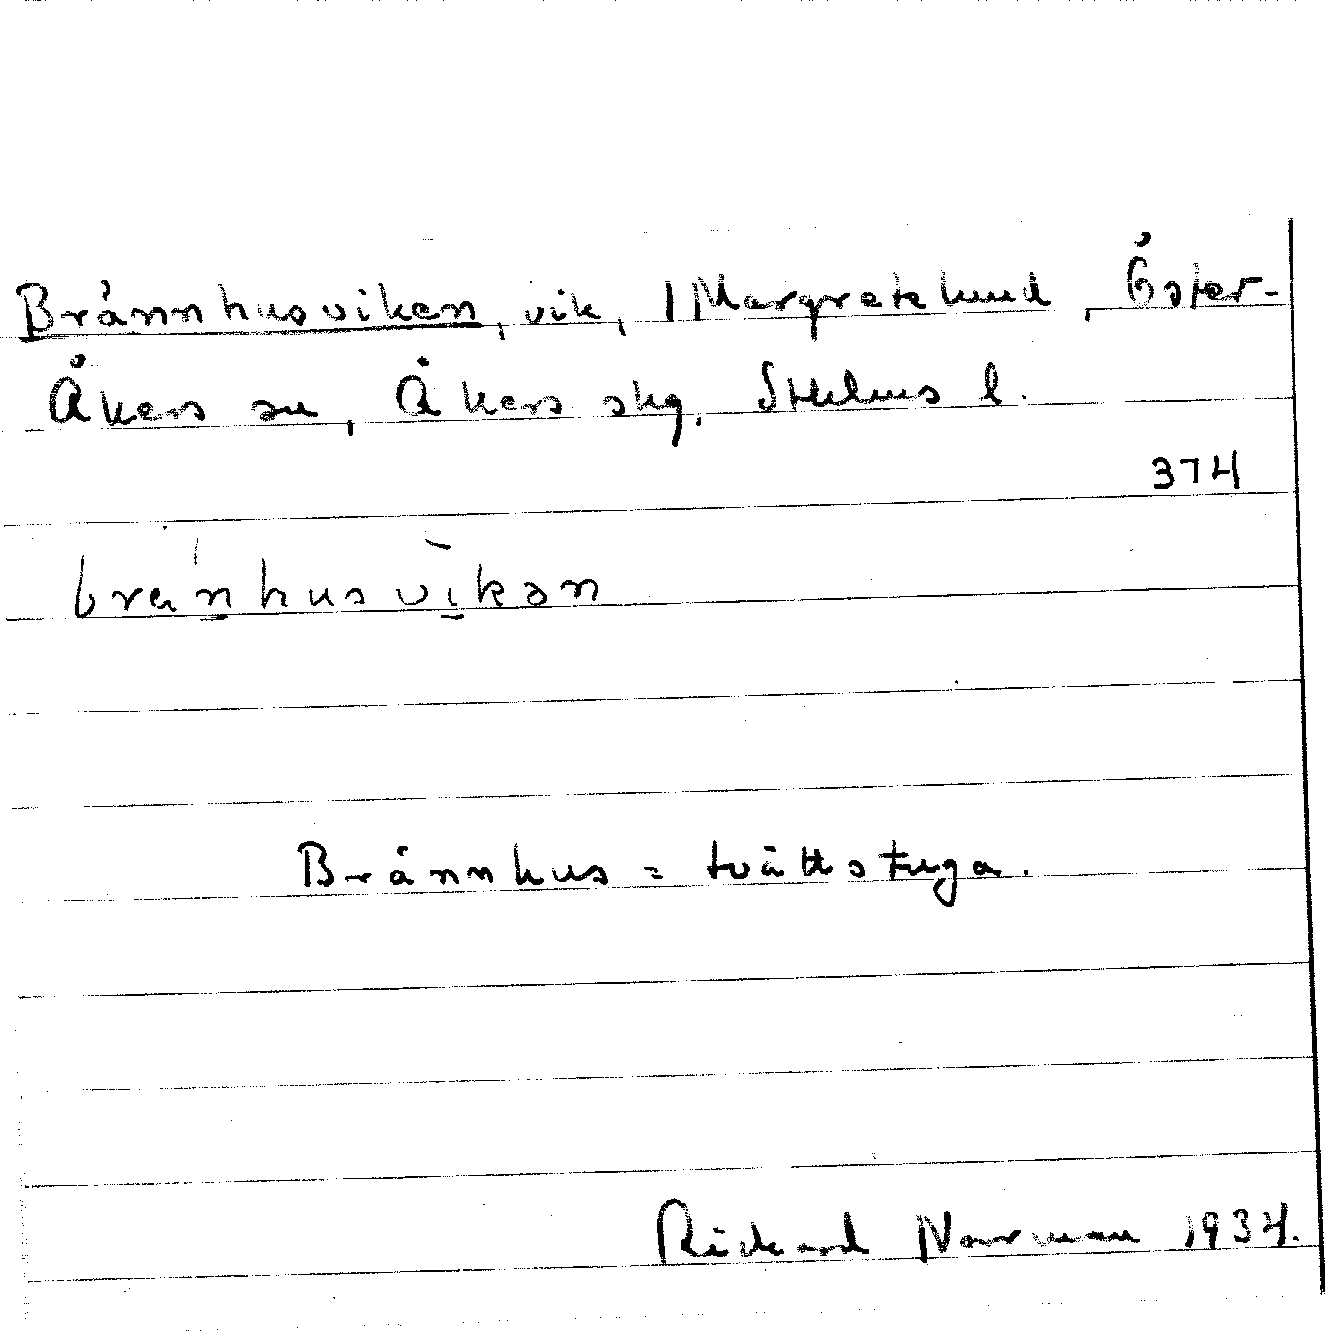 Brännhusviken, vik, 1 Margretelund, Öster-
Åkers sn, Åkers skg, Sthlms l.
374
brän̲husvi̲kən
Brännhus = tvättstuga.
Rickard Norrman 1934.